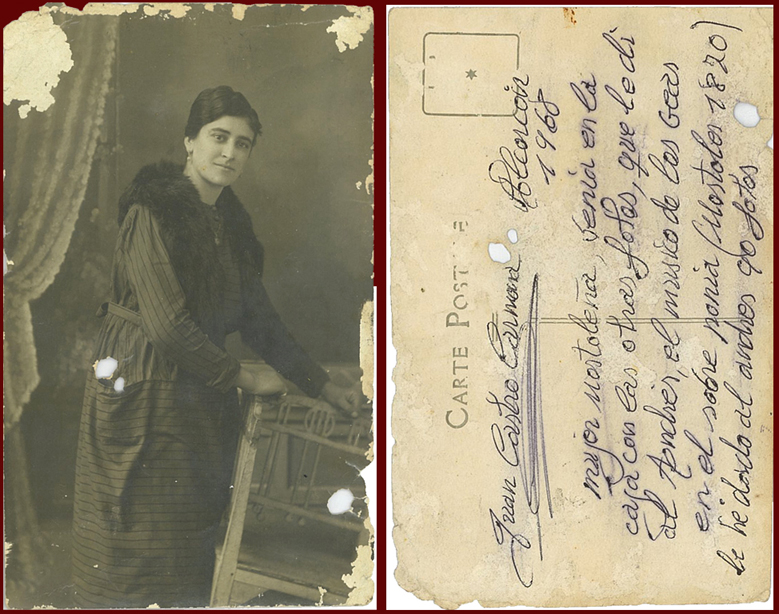 CARTE POST
Juan Castro Carmona Alcorcón
1968
mujer mostoleña, venia en la
caja con las otras fotos, que le di
al Andres, el musico de las Geas
en el sobre ponia (Mostoles 1820)
le he dado al andres 90 fotos